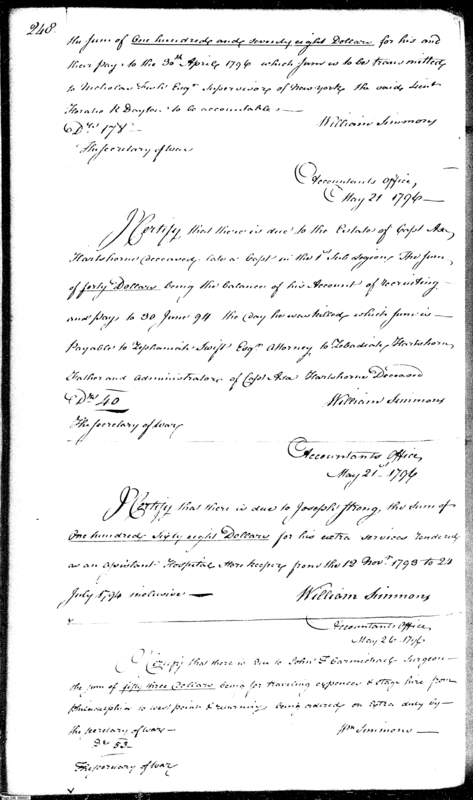 248.
the sum of One hundred and seventy eight Dollars for his and
their pay to the 30th April 1796 which sum is to be transmitted
to Nicholas Fish Esqr Supervisor of New York the said Lieut
Horatio R Dayton to be accountable —
Drs 178
William Simmons
The Secretary of War
Accountants Office,
May 21 1796 —
I Certify that there is due to the Estate of Capt Asa
Hartshorne deceased late a Capt in the 1st Sub Legion, The sum
of forty Dollars being the balance of his Account of recruiting
and pay to 30 June 94 the day he was killed, which sum is
Payable to Zephaniah Swift Esqr Attorney to Zebadiah Hartshorn
Father and Administrator of Capt Asa Hartshorne Deceased
Drs 40
William Simmons
The Secretary of War
Accountants Office,
May 21st 1796
I Certify that there is due to Joseph Strong, the sum of
One hundred Sixty eight Dollars for his extra services rendered
as an assistant Hospital Store keeper from the 12 Novr 1793 to 24
July 1794 inclusive —
William Simmons
Accountants Office,
May 26 1796
I Certify that there is due to John F Carmichael Surgeon
the sum of fifty three Dollars being for traveling expences & stage hire from
Philadelphia to west point & returning being ordered on extra duty by
the secretary of war —
Wm Simmons —
Drs 53
The secretary of War